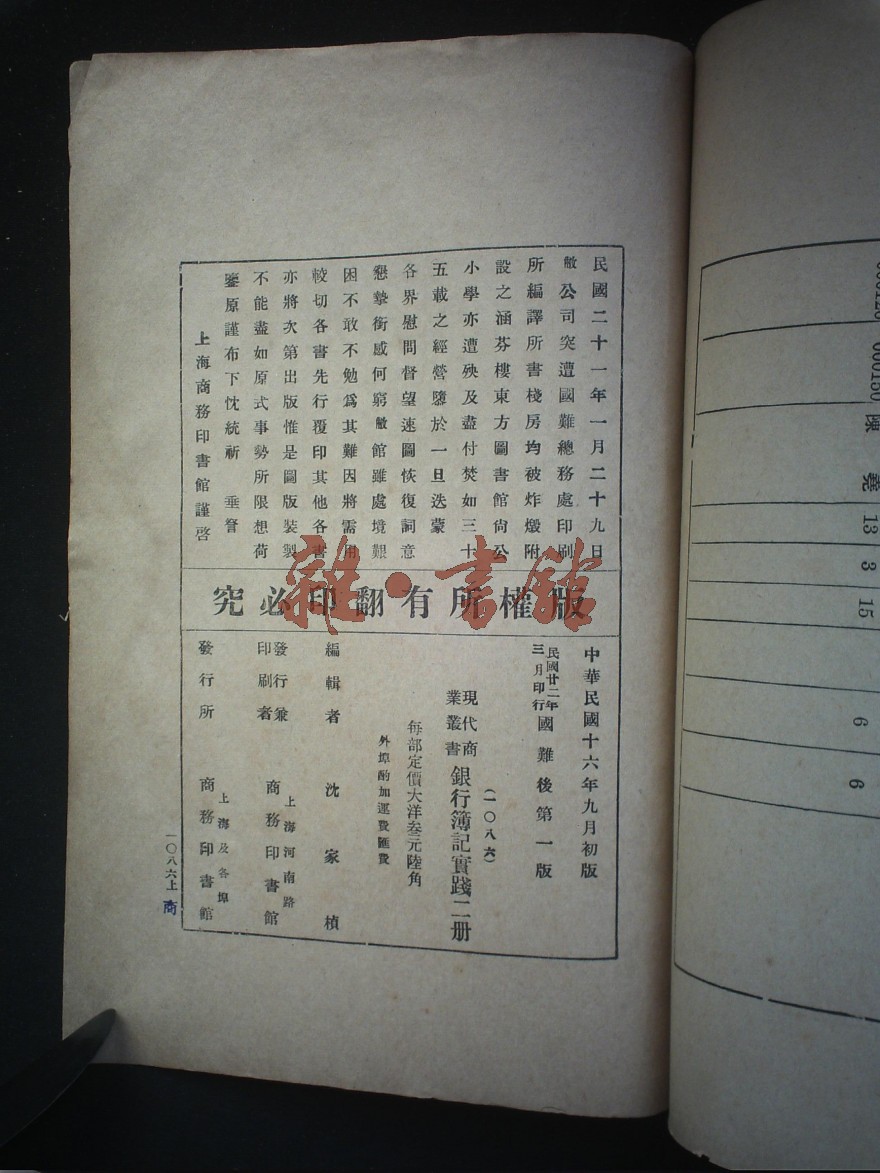 民國二十一年一月二十九日
敝公司突遭國難總務處印刷
所編譯所書棧房均被炸燬附
設之涵芬樓東方圖書館尚公
小學亦遭殃及盡付焚如三十
五載之經營隳於一旦迭蒙
各界慰問督望速圖恢復詞意
懇摯銜感何窮敝館雖處境艱
困不敢不勉爲其難因將需用
較切各書先行覆印其他各書
亦將次第出版惟是圖版裝製
不能盡如原式事勢所限想荷
鑒原謹布下忱統祈 垂詧
上海商務印書館謹啓
版權所有翻印必究
雜·書館
中華民國十六年九月初版
民國廿二年三月印行 國難後第一版
(一〇八六)
現代商業叢書 銀行簿記實踐二册
每部定價大洋叁元陸角
外埠酌加運費匯費
編輯者 沈家楨
發行兼印刷者 上海河南路 商務印書館
發行所 上海及各埠 商務印書館
一〇八六上 商
000150
陳
13
3
15
6
6